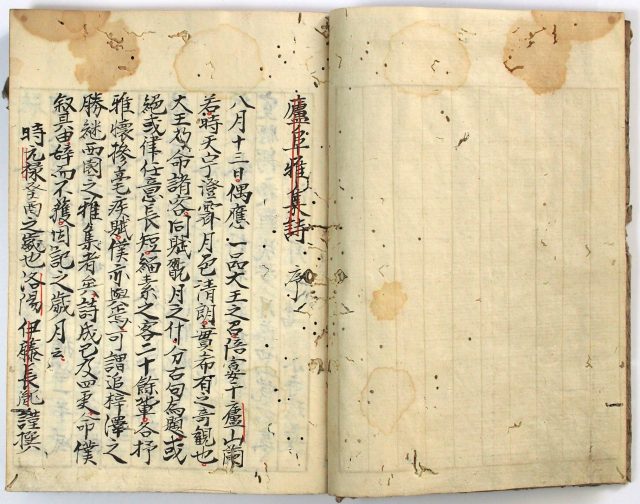 廬阜雅集詩 序
八月十三日偶應一品大王之召陪宴于廬山蘭
若時天宇澄霽月色清朗實希有之奇觀也
大王乃命諸客同賦翫月之什分古句為題或
絕或律任意長短緇素之客二十餘輩各抒
雅懷摻毫疾賦僕亦與焉可謂追梓澤之
勝継西園之雅集者矣詩成已及四更命僕
叙其由辞而不獲因記之歲月云
時元祿癸酉之歲也洛陽伊藤長胤謹撰